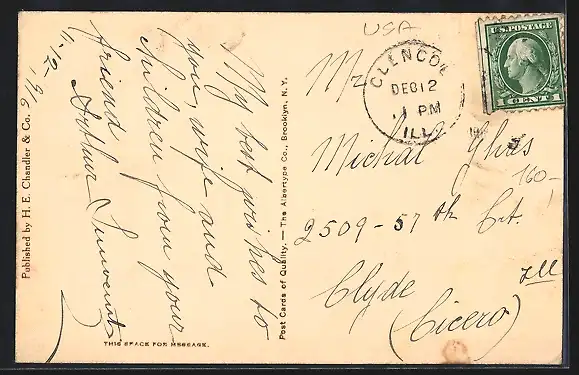 USA
U.S. POSTAGE
1 CENT 1
GLENCOE
DEC 12
1 PM
ILL.
Mr.
Michal
160-
2509-57th Crt.
Clyde Ill
(Cicero)
My best wishes to
you, wife and
children from your
friend
Arthur
11-12-19
THIS SPACE FOR MESSAGE.
Published by H. E. Chandler & Co.
Post Cards of Quality. — The Albertype Co., Brooklyn, N. Y.